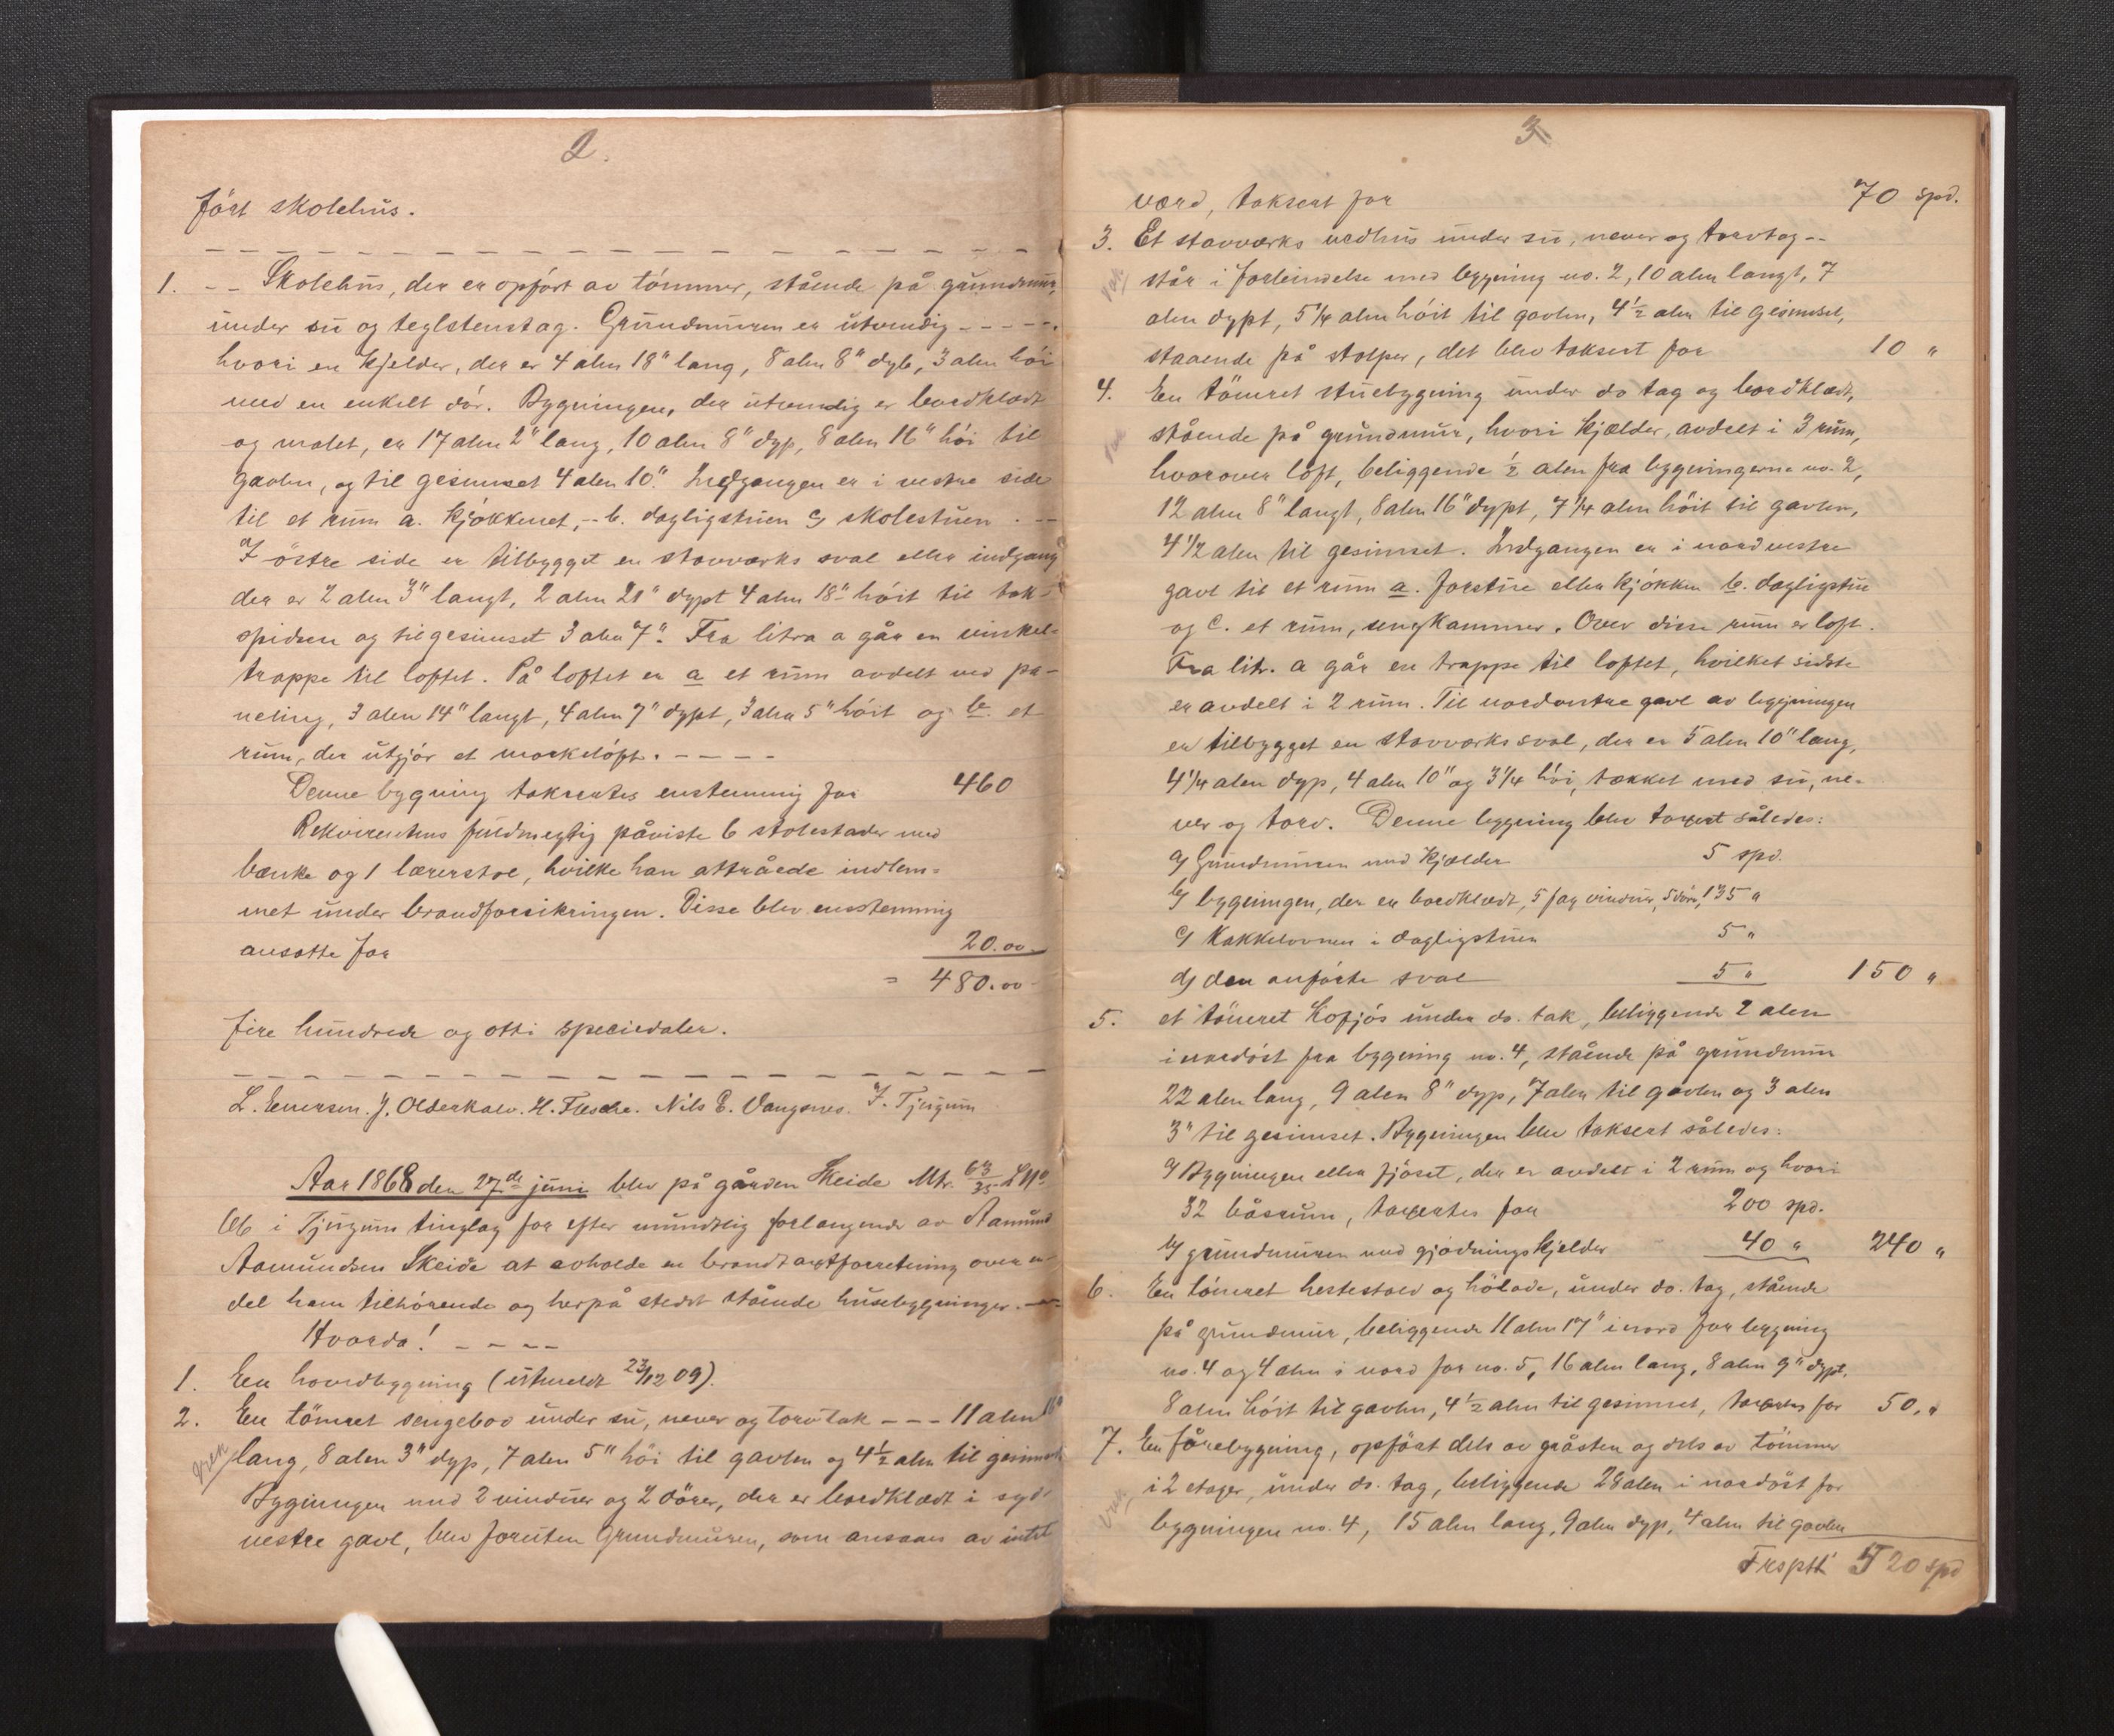 2.
ført skolehus.
1. -- Skolehus, der er opført av tömmer, stående på grundmur,
under su og teglstenstag. Grundmuren er utvendig -----,
hvori en Kjelder, der er 4 alen 18" lang, 8 alen 8" dyb, 3 alen høi
med en enkelt dör. Bygningen, der utvendig er bordklædt
og malet, er 17 alen 2" lang, 10 alen 8" dyp, 8 alen 16" höi til
gavlen, og til gesimset 4 alen 10". Indgangen er i vestre side
til et rum a. Kjökkenet, -- b. dagligstuen c) skolestuen. --
I östre side er tilbygget en stavværks sval eller indgang
der er 2 alen 3" langt, 2 alen 21" dypt 4 alen 18" höit til tak-
spidsen og til gesimset 3 alen 7". Fra litra a går en vinkel-
trappe til loftet. På loftet er a et rum avdelt ved pa-
neling, 3 alen 14" langt, 4 alen 7" dypt, 3 alen 5" höit og b. et
rum, der utgjör et mørkeloft. ----
Denne bygning taksertes enstemmig for 460
Rekvirentens fuldmegtig påviste 6 stolestader med
bænke og 1 lærerstol, hvilke han attråede indlem-
met under brandforsikringen. Disse blev enstemmig
ansatte for 20.00
= 480.00
fire hundrede og otti speciedaler.
L. Enersen. J. Olderkalv. H. Flesche. Nils E. Vangsnes. I. Tjugum
Aar 1868 den 27de juni blev på gården Skeide Mtr. 63/35 LNo
6b i Tjugum tinglag for efter mundtlig forlangende av Aamund
Aamundsen Skeide at avholde en brandtaxtforretning over en
del ham tilhörende og herpå stedet stående husebygninger. --
Hvorda! ----
1. En hovedbygning (utmeldt 23/12 09).
2. En tömret sengebod under su, never og torvtak --- 11 alen 18"
lang, 8 alen 3" dyp, 7 alen 5" höi til gavlen og 4 1/2 alen til gesimset
Bygningen med 2 vinduer og 2 dörer, der er bordklædt i syd
vestre gavl, blev foruten Grundmuren, som ansaaes av intet
3
værd, taksert for 70 spd.
3. Et stavværks vedhus under su, never og torvtag --
står i forbindelse med bygning no. 2, 10 alen langt, 7
alen dypt, 5 1/4 alen höit til gavlen, 4 1/2 alen til gesimset,
staaende på stolper, det blev taksert for 10 "
4. En tömret stuebygning under do tag og bordklædt,
stående på grundmur, hvori Kjælder, avdelt i 3 rum,
hvorover loft, beliggende 1/2 alen fra bygningerne no. 2,
12 alen 8" langt, 8 alen 16" dypt, 7 1/4 alen höit til gavlen,
4 1/2 alen til gesimset. Indgangen er i nordvestre
gavl til et rum a. forstue eller kjökken b. dagligstue
og C. et rum, sengkammer. Over disse rum er loft.
Fra litr. a går en trappe til loftet, hvilket sidste
er avdelt i 2 rum. Til nordvestre gavl av bygningen
er tilbygget en stavværks sval, der er 5 alen 10" lang,
4 1/4 alen dyp, 4 alen 10" og 3 1/4 höi, tækket med su, ne-
ver og torv. Denne bygning blev taxert således:
a) Grundmuren med Kjælder 5 spd.
b) bygningen, der er bordklædt, 5 fag vinduer, 5 döre, 135 "
c) Kakkelovnen i dagligstuen 5 "
d) den anförte sval 5 " 150 "
5. et tömret Kofjös under do. tak, beliggende 2 alen
i nordöst fra bygning no. 4, stående på grundmur
22 alen lang, 9 alen 8" dyp, 7 alen til gavlen og 3 alen
3" til gesimset. Bygningen blev taksert således:
a) Bygningen eller fjöset, der er avdelt i 2 rum og hvori
32 båsrum, taxertes for 200 spd.
b) grundmuren med gjödningskjelder 40 " 240 "
6. En tömret hestestald og hölade, under do. tag, stående
på grundmur, beliggende 11 alen 17" i nord for bygning
no. 4 og 4 alen i nord for no. 5, 16 alen lang, 8 alen 9" dypt,
8 alen höit til gavlen, 4 1/2 alen til gesimset, taxertes for 50. "
7. En fårebygning, opföst dels av gråsten og dels av tömmer
i 2 etager, under do. tag, beliggende 28 alen i nordöst for
bygningen no. 4, 15 alen lang, 9 alen dyp, 4 alen til gavlen
Trsptt 520 spd